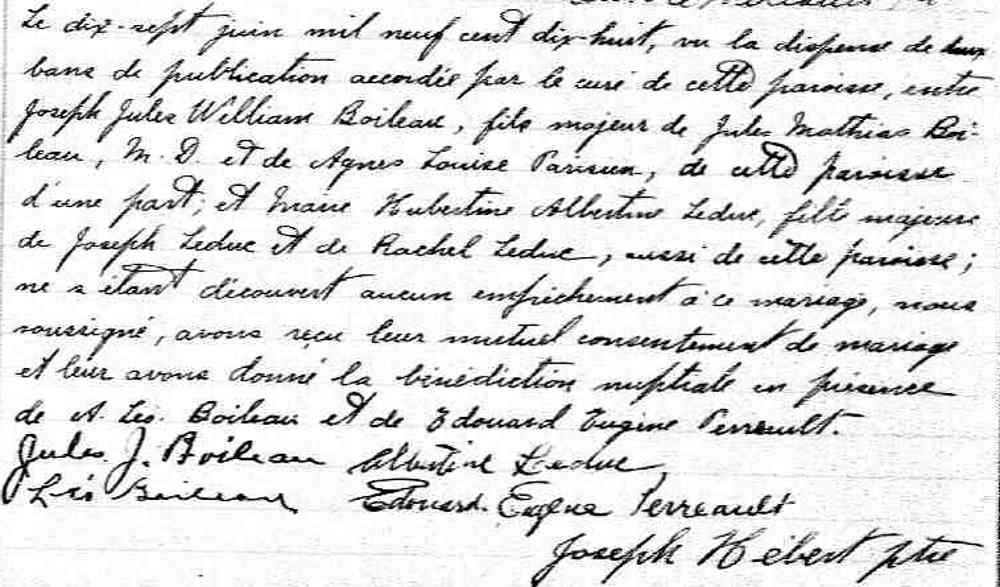 Le dix-sept juin mil neuf cent dix-huit, vu la dispense de deux
bans de publication accordée par le curé de cette paroisse, entre
Joseph Jules William Boileau, fils majeur de Jules Mathias Boi-
leau, M. D. et de Agnes Louise Parisien, de cette paroisse
d'une part; et Marie Hubertine Albertine Leduc, fille majeure
de Joseph Leduc et de Rachel Leduc, aussi de cette paroisse;
ne s'étant découvert aucun empêchement à ce mariage, nous
soussigné, avons reçu leur mutuel consentement de mariage
et leur avons donné la bénédiction nuptiale en présence
de A. Léo. Boileau et de Edouard Eugène Perreault.
Jules. J. Boileau Albertine Leduc
Léo Boileau Edouard. Eugène Perreault
Joseph Hébert ptre